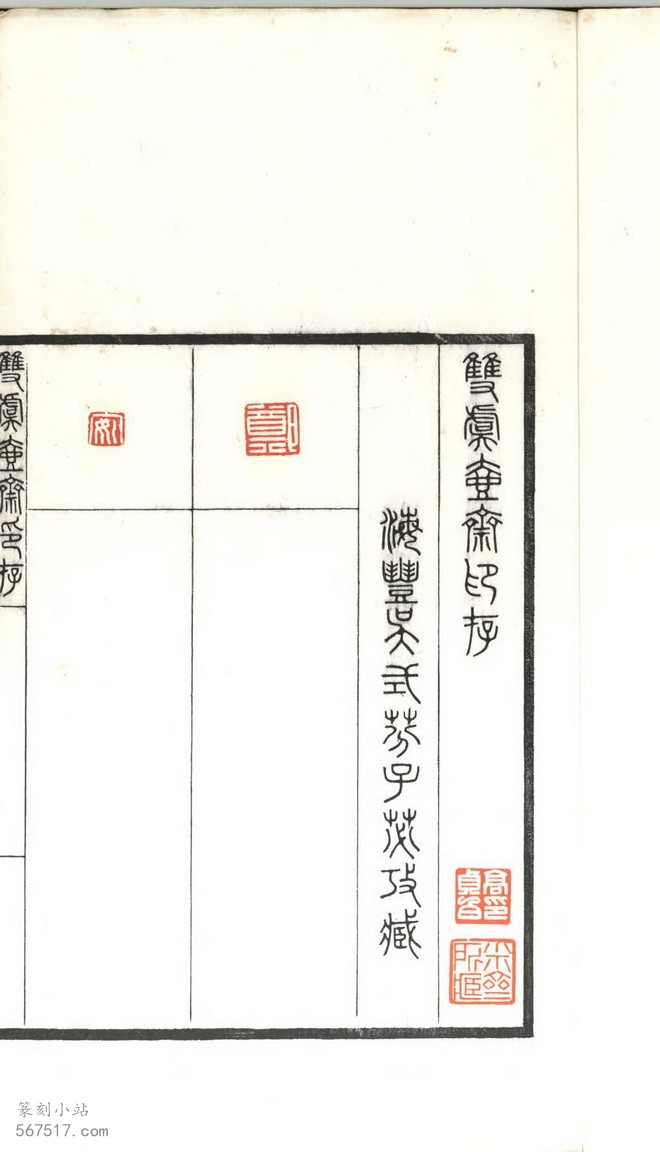 雙虞壺齋印存
海豐吳式芬子苾攷藏
雙虞壺齋印存
篆刻小站
567517.com